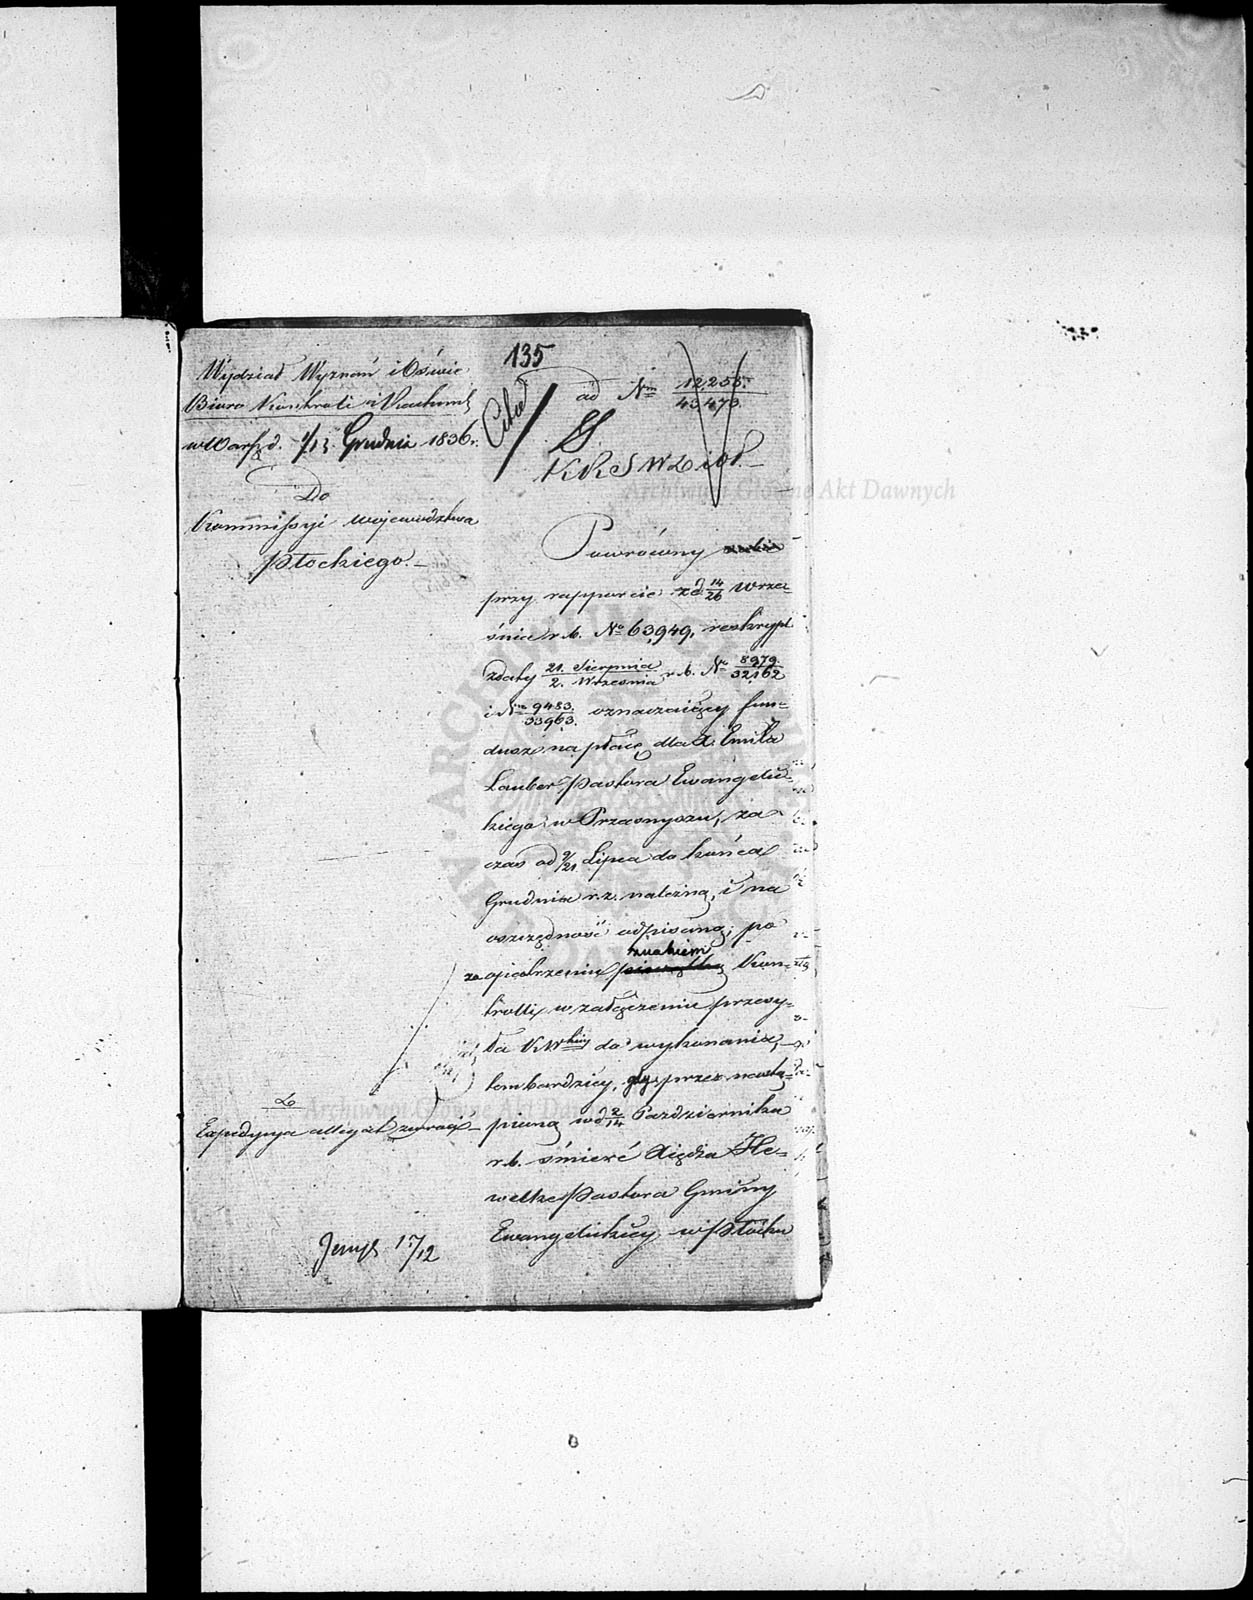 135
Wydział Wyznań i Oświec
Biuro Kontroli i Rachunk
w Warsz d. 1/13 Grudnia 1836 r.
Do
Kommissyi Wojewodztwa
Płockiego.
Cito
ad Nrm 12,255. / 43,473.
K R S W D i O P.
Powrócony
przy rapporcie z d 14/26 Wrze-
śnia r. b. No 63,949, reskrypt
z daty 21. Sierpnia / 2. Września r. b. No 8979. / 32,162
i Nrm 9483. / 33963. oznaczaiący fun-
dusze na płacę dla X. Emila
Lauber, Pastora Ewangelic-
kiego w Przasnyszu, za
czas od 9/21 Lipca do końca
Grudnia r. z. należną, i na
oszczędność odpisaną; po
zaopatrzeniu znakiem Kon-
trolli, w załączeniu przesy-
ła K. Wkiey do wykonania,
tem bardziey, gdy przez nastą-
pioną w d 2/14 Pazdziernika
r. b. śmierć Xiędza He-
welke Pastora Gminy
Ewangelickiey w Płocku
Expedycya allegat zwraca
17/12
Archiwum Główne Akt Dawnych
Archiwum Główne Akt Dawnych